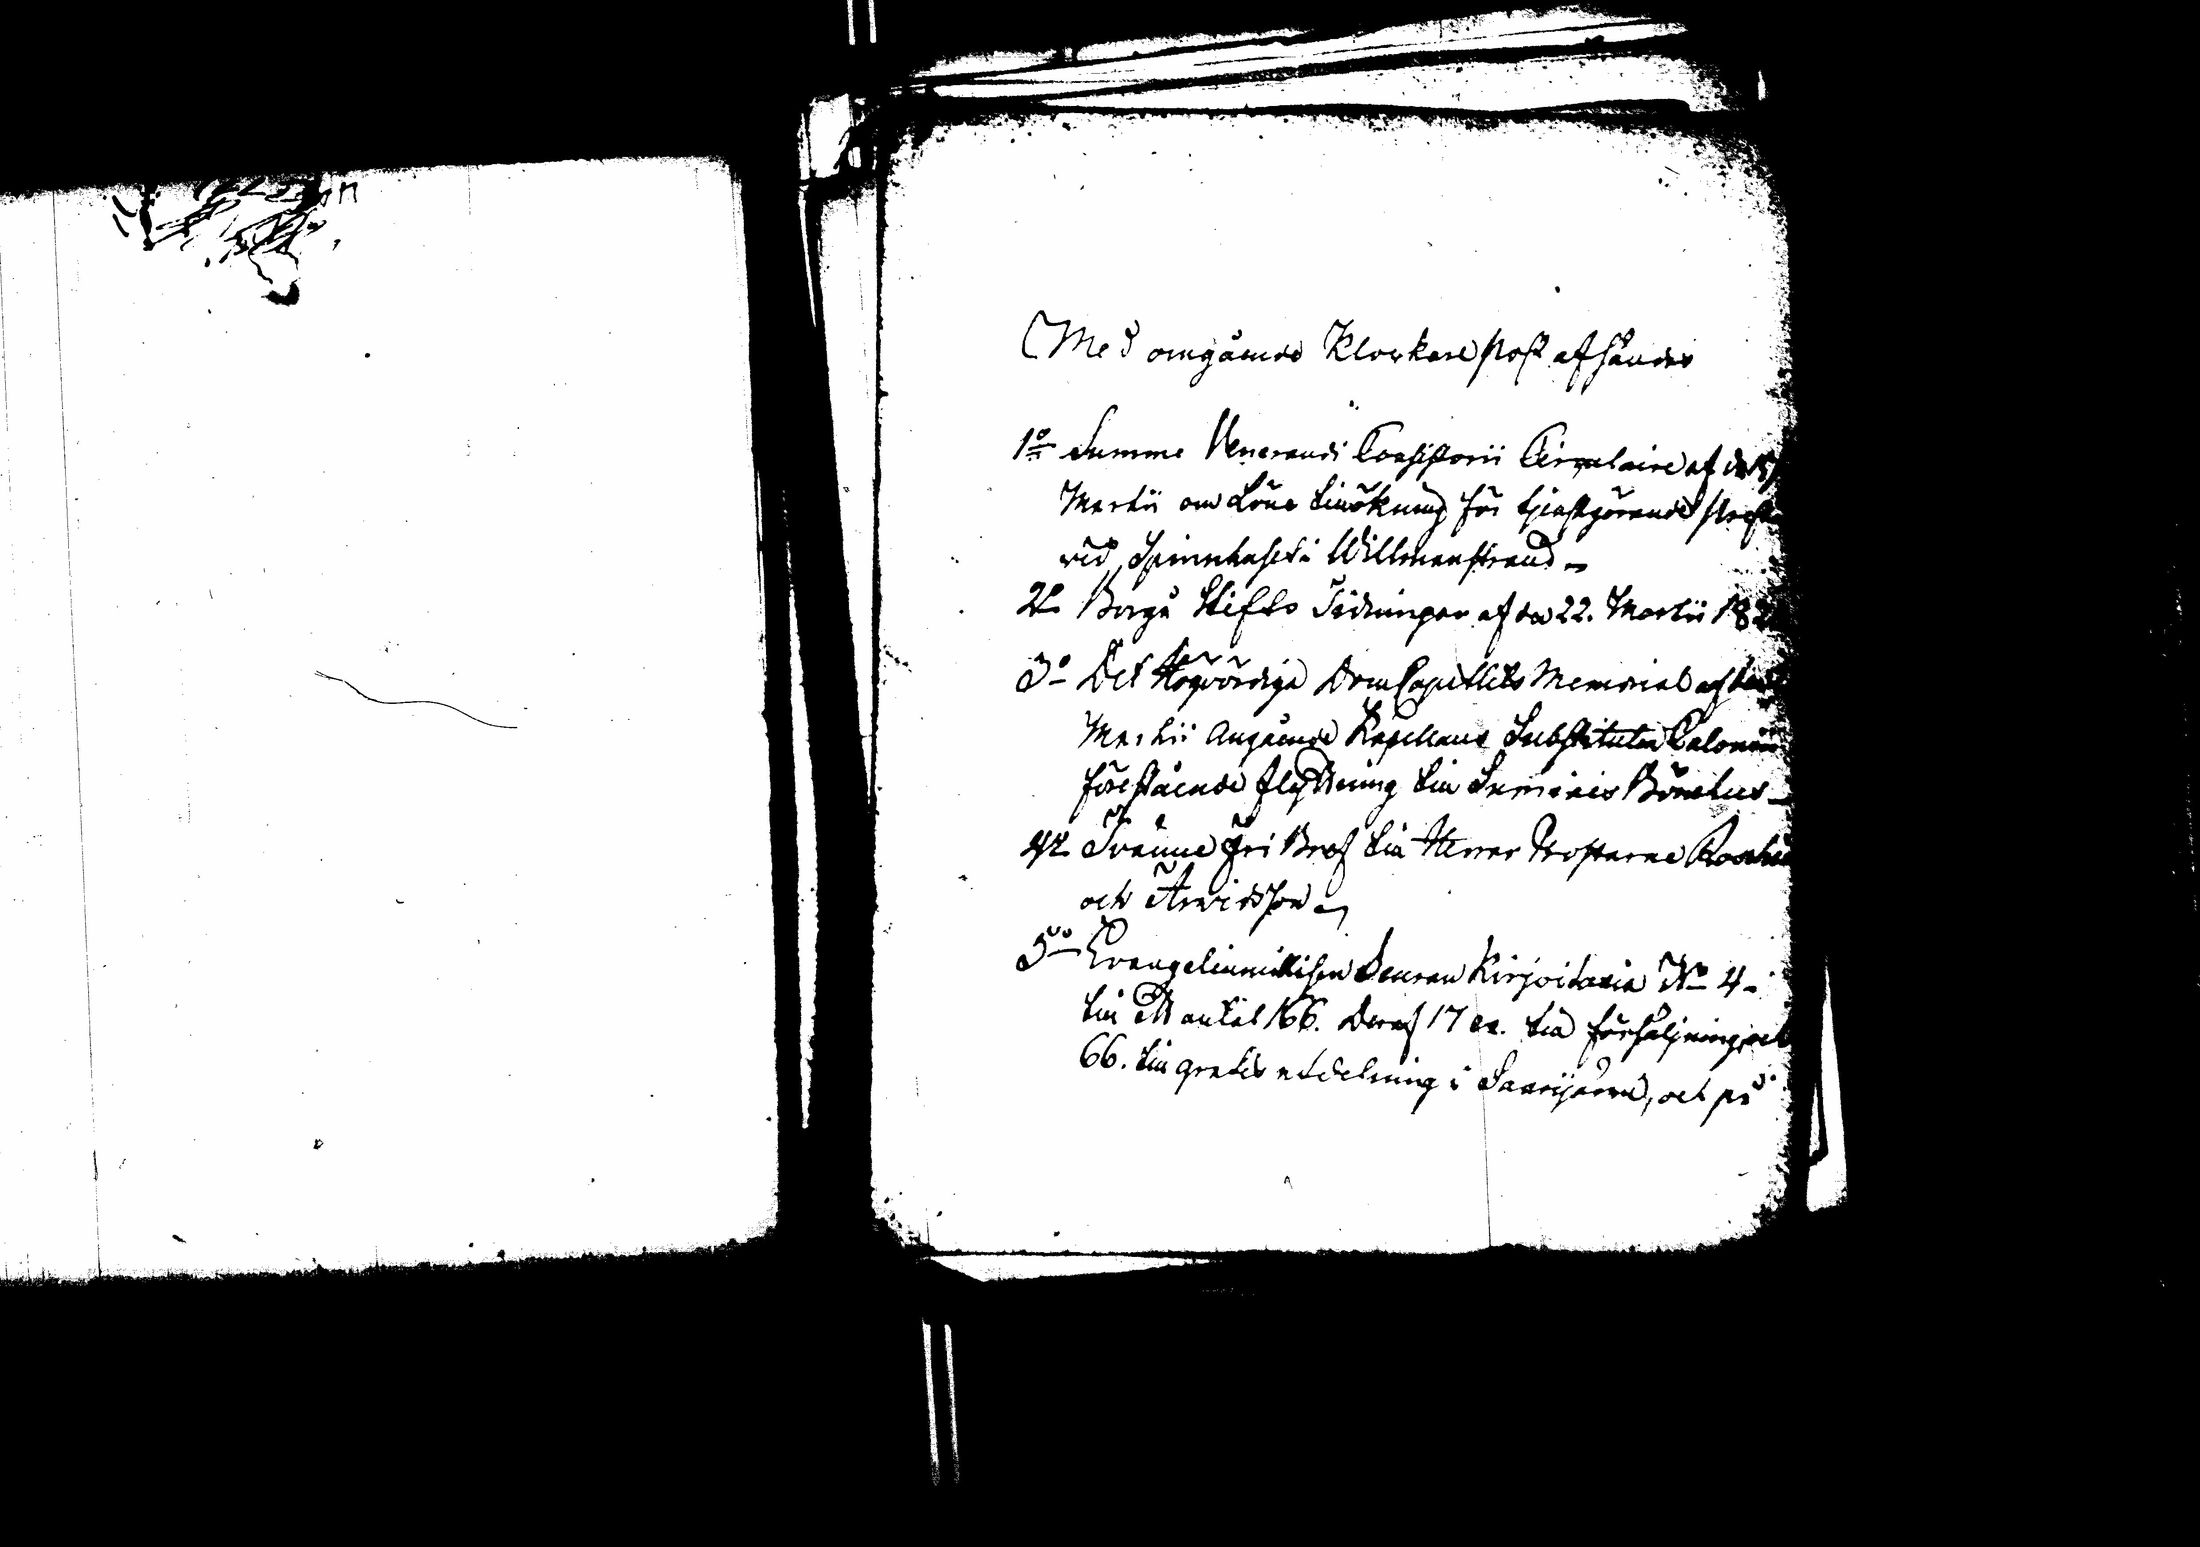 Med omgående Klockare post afsändes
1o Summe Venerandi Consistorii Circulaire af den
Martii om Löne tillökning för tjenstgörande Prest
vid Spinnhuset i Willmanstrand
2o Borgå Stifts Tidningar af den 22. Martii 18
3o Det Högvördiga DomCapitlets Memorial af den
Martii angående Kapellans Substituten Calonii
förestående flyttning till Sumiais Bönehus
4o Tvänne Fri Bref till Herrar Prostarne
och Arvidsson
5o Evangeliumillisen Seuran Kirjoituxia No 4
till ett antal 166. Deraf 17 ex. till försäljning, och
66. till gratis utdelning i Saarijärvi, och på